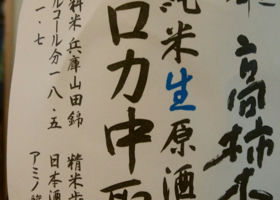 高柿木
純米生原酒
ロカ中取
料米兵庫山田錦 精米歩
ルコール分一八・五 日本酒
一・七 アミノ酸